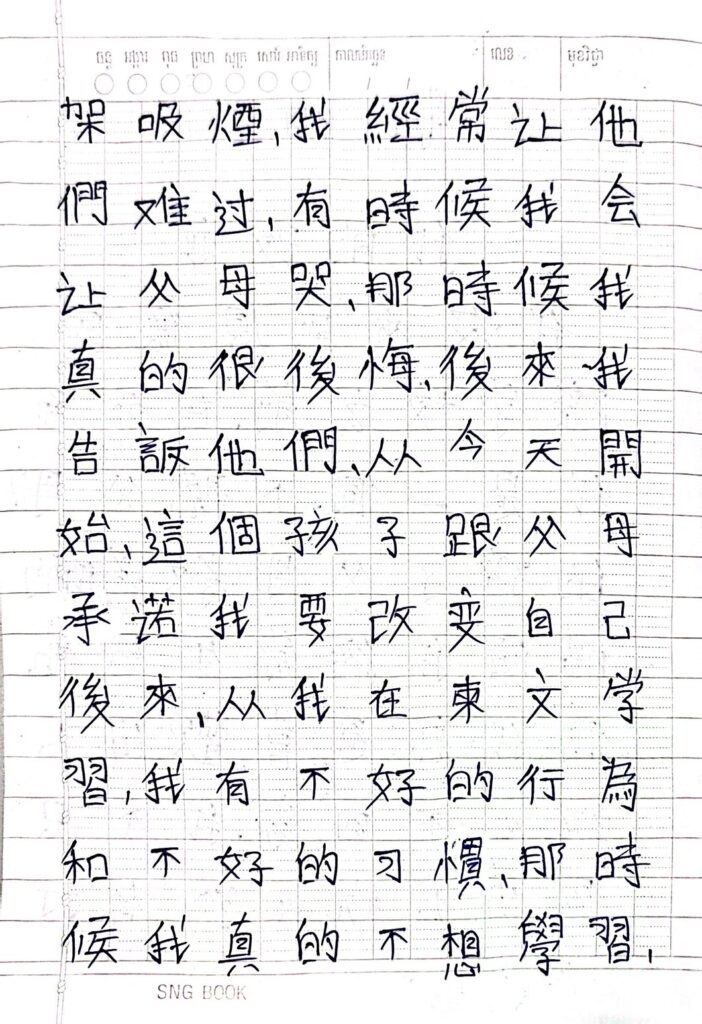 ចន្ទ អង្គារ ពុធ ព្រហ សុក្រ សៅរ៍ អាទិត្យ កាលបរិច្ឆេទ លេខ មុខវិជ្ជា
架吸煙,我經常让他
們难过,有時候我会
让父母哭、那時候我
真的很後悔、後來我
告訴他們、从今天開
始、這個孩子跟父母
承诺我要改变自己
後來、从我在東文学
習,我有不好的行為
和不好的习慣、那時
候我真的不想學習、
SNG BOOK